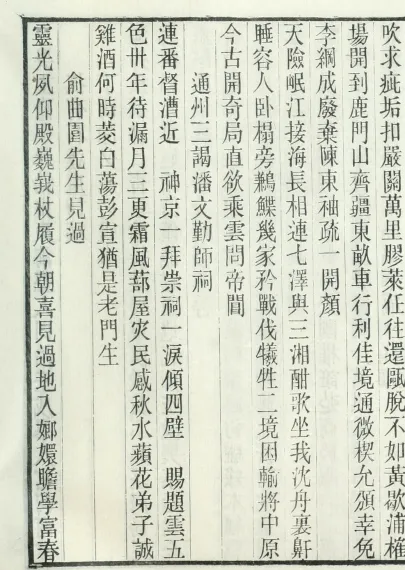 吹求疵垢扣嚴關萬里膠萊任往還甌脫不如黃歇浦榷
場開到鹿門山齊疆東畝車行利佳境通微楔允頒幸免
李綱成廢棄陳東袖疏一開顏
天險岷江接海長相連七澤與三湘酣歌坐我沈舟裏鼾
睡容人臥榻旁鶼鰈幾家矜戰伐犧牲二境困輸將中原
今古開奇局直欲乘雲問帝閶
通州三謁潘文勤師祠
連番督漕近 神京一拜崇祠一淚傾四壁 賜題雲五
色卅年待漏月三更霜風蔀屋灾民感秋水蘋花弟子誠
雞酒何時菱白蕩彭宣猶是老門生
俞曲園先生見過
靈光夙仰殿巍峩杖履今朝喜見過地入嫏嬛瞻學富春